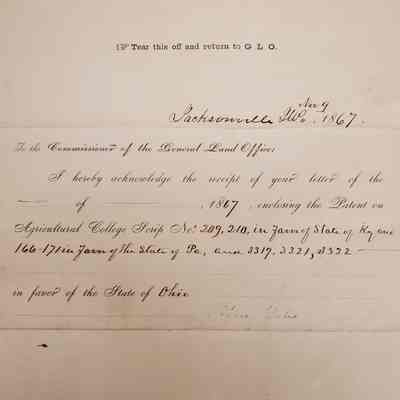 ☞ Tear this off and return to G L O.
Nov 9
Jacksonville Ills. 1867.
To the Commissioner of the General Land Office:
I hereby acknowledge the receipt of your letter of the
—— of ————————, 1867, enclosing the Patent on
Agricultural College Scrip No. 209, 210, in favor of State of Ky and
166-171 in favor of the State of Pa, and 3319, 3321, 3322 ——
in favor of the State of Ohio